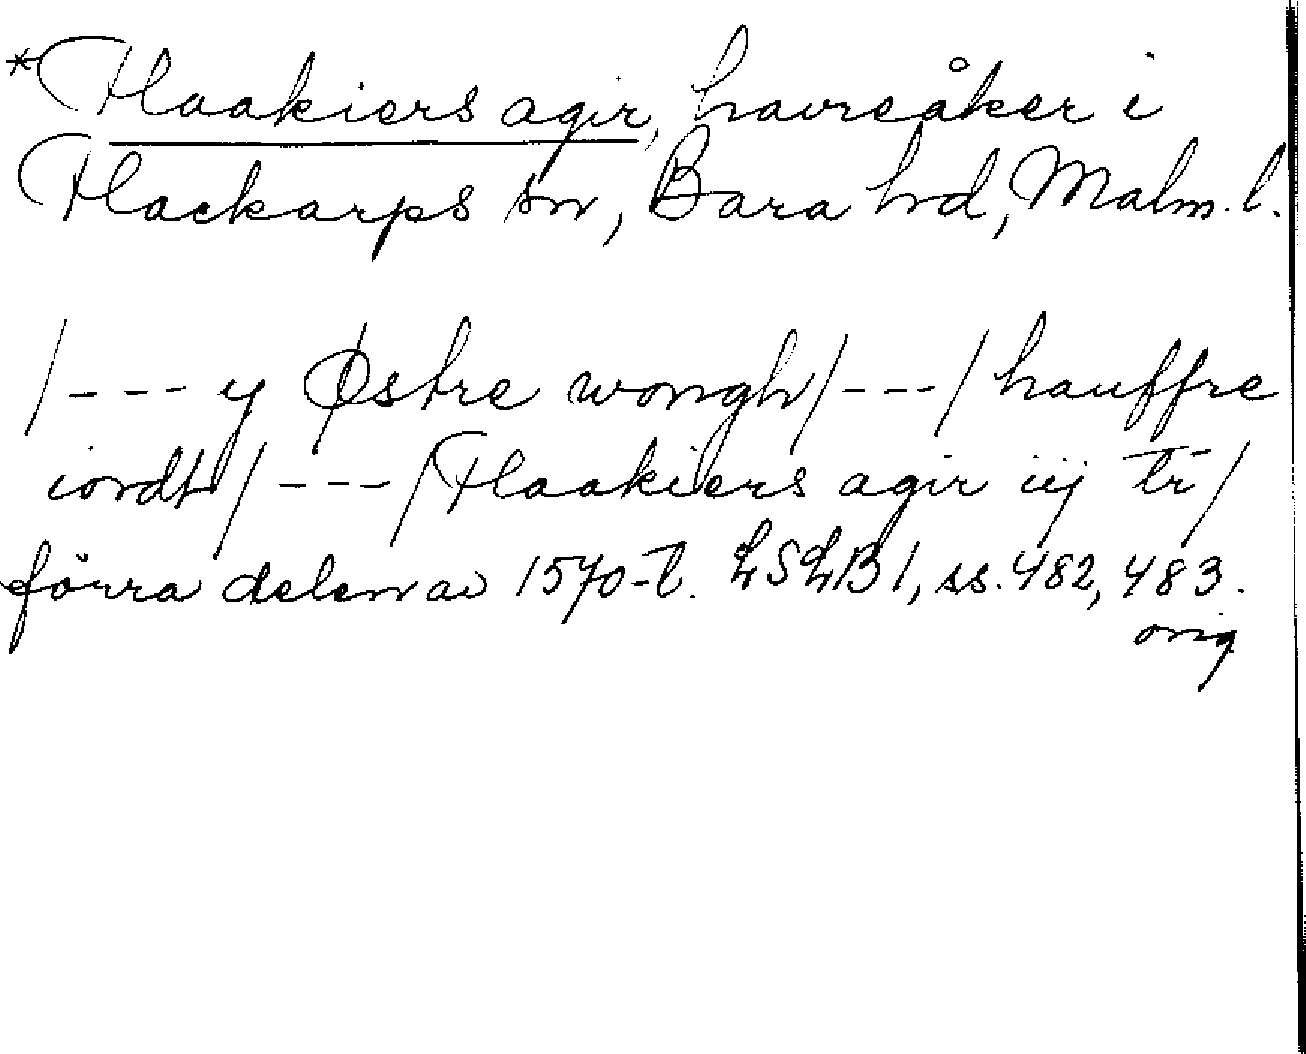 *Flaakiers agir, havreåker i
Flackarps sn, Bara hd, Malm. l.
/--- y Østre wongh/---/ hauffre
iordt/---/Flaakiers agir iij tr/
förra delen av 1570-t. LSLB 1, ss. 482, 483.
orig